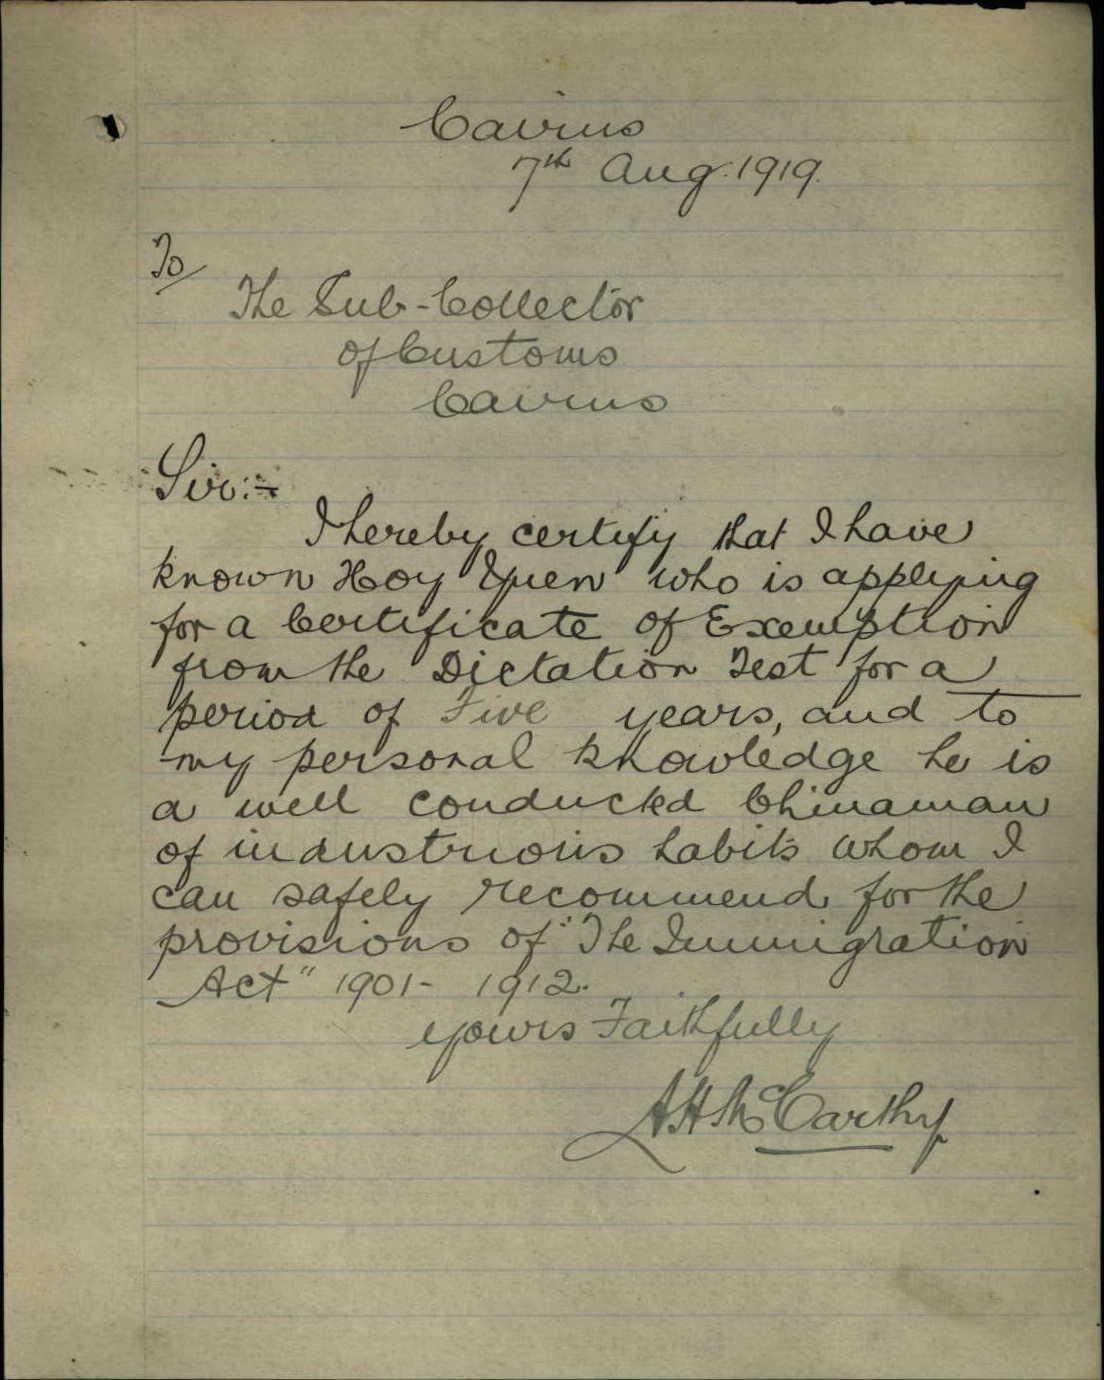 Cairns
7th Aug. 1919.
To
The Sub-Collector
of Customs
Cairns
Sir:-
I hereby certify that I have
known Hoy Yuen who is applying
for a Certificate of Exemption
from the Dictation Test for a
period of Five years, and to
my personal knowledge he is
a well conducted Chinaman
of industrious habits whom I
can safely recommend for the
provisions of "The Immigration
Act" 1901-1912.
Yours Faithfully
A H McCarthy